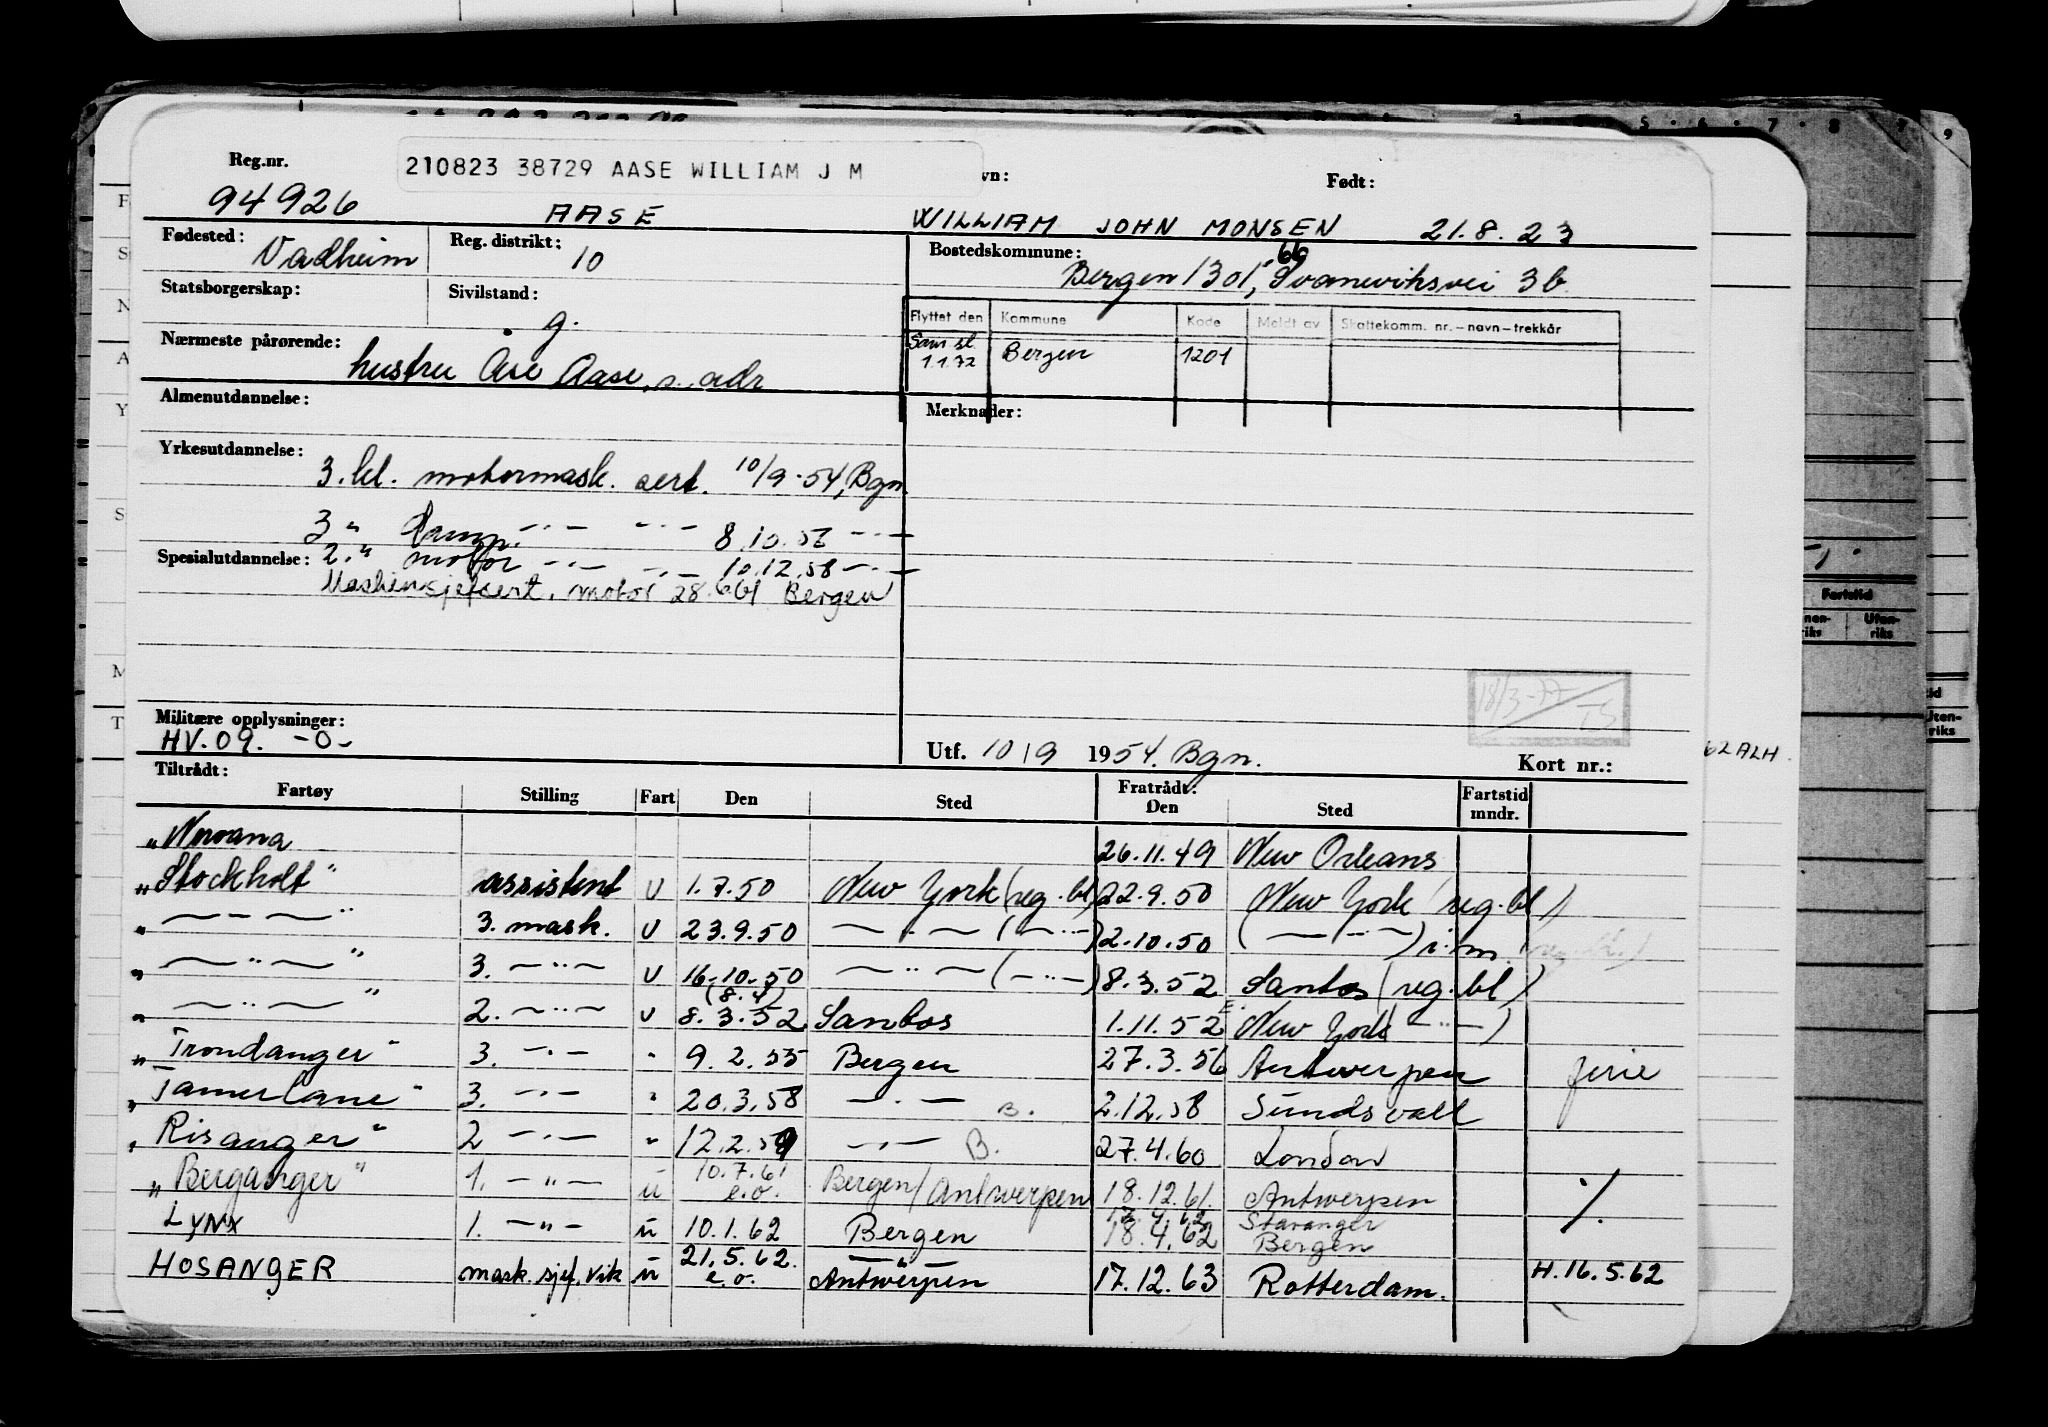 Reg.nr. 210823 38729 AASE WILLIAM J M vn: Født:
94926 AASE WILLIAM JOHN MONSEN 21.8.23
Fødested: Vadheim Reg. distrikt: 10 Bostedskommune: Bergen 1301, 66 Svaneviksvei 3b
Statsborgerskap: Sivilstand: g.
Flyttet den Kommune Kode Meldt av Skattekomm. nr.-navn-trekkår
Sam sl. 1.1.72 Bergen 1201
Nærmeste pårørende: hustru Åse Aase, s. adr
Almenutdannelse: Merknader:
Yrkesutdannelse:
3.kl. motormask. sert. 10/9-54, Bgn.
3 " damp. -"- -"- 8.10.58 -"-
Spesialutdannelse: 2. " motor -"- -"- 10.12.58 -"-
Maskinsjefsert. motor 28.6.61 Bergen
18/3-77 TS
Militære opplysninger:
HV.09. -0-
Utf. 10/9 1954. Bgn. Kort nr.:
62 ALH
Tiltrådt: Fratrådt:
Fartøy Stilling Fart Den Sted Den Sted Fartstid mndr.
"Nirvana 26.11.49 New Orleans
"Stockholt" assistent U 1.7.50 New York (reg.bl) 22.9.50 New York (reg.bl)
" -"- " 3. mask. U 23.9.50 -"- (-"-) 2.10.50 (-"-) i.m.
" -"- " 3. -"- U 16.10.50 -"- (-"-) 8.3.52 Santos (reg.bl)
" -"- " 2. -"- U (8.4) 8.3.52 Santos 1.11.52 New York (-"-)
"Trondanger" 3. -"- " 9.2.55 Bergen 27.3.56 Antwerpen ferie
"Tamerlane" 3. -"- " 20.3.58 -"- B. 2.12.58 Sundsvall
"Risanger" 2 -"- " 12.2.59 -"- B. 27.4.60 London
"Berganger" 1. -"- u 10.7.61 e.o. Bergen/Antwerpen 18.12.61 Antwerpen ./.
LYNX 1. -"- u 10.1.62 Bergen 17.4.62 Stavanger 18.4.62 Bergen
HOSANGER mask.sjef. vik u 21.5.62. e.o. Antwerpen 17.12.63 Rotterdam. H.16.5.62
Fartstid
Uten-riks